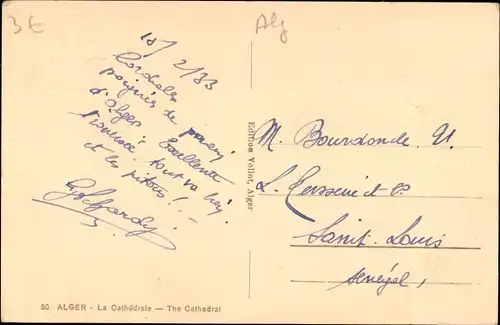 3 E
Alg
10/2/33
Cordiale
poignée de main
d'Alger. Excellente
traversée, tout va bien
et les
Edition Vollot, Alger
M. Bourdonde.
L. Teisseire et Co
Saint-Louis
Sénégal,
50 ALGER - La Cathédrale — The Cathedral